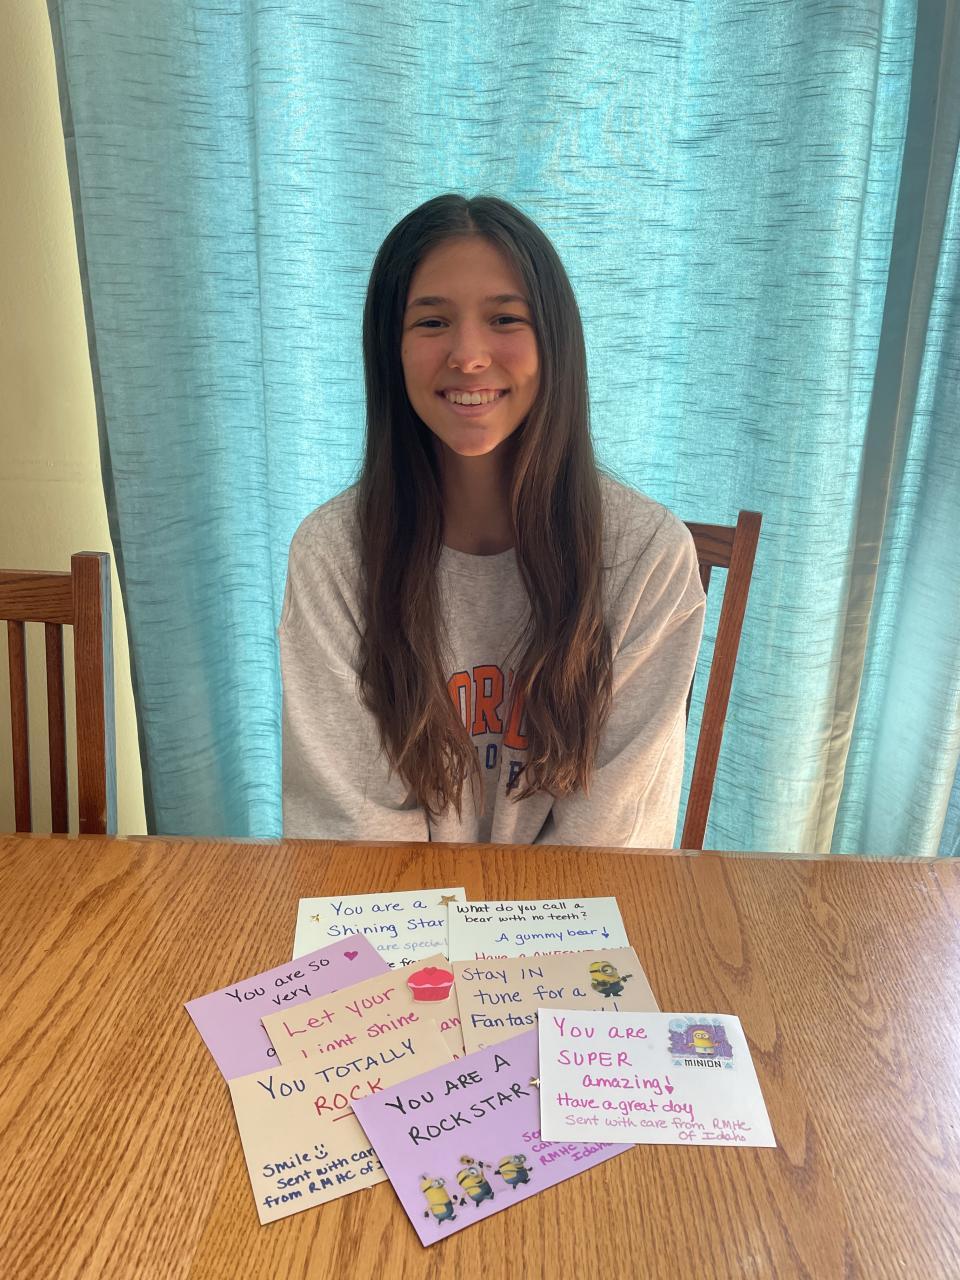 ORI
You are a
Shining Star
are special
What do you call a
bear with no teeth?
A gummy bear!
Have a AWESOME
You are so
very
Let your
light shine
Stay IN
tune for a
You TOTALLY
ROCK
Smile
Sent with
from RMHC of
YOU ARE A
ROCKSTAR
RMHC
Idaho
You are
SUPER
amazing!
Have a great day
Sent with care from RMHC
Of Idaho
MINION